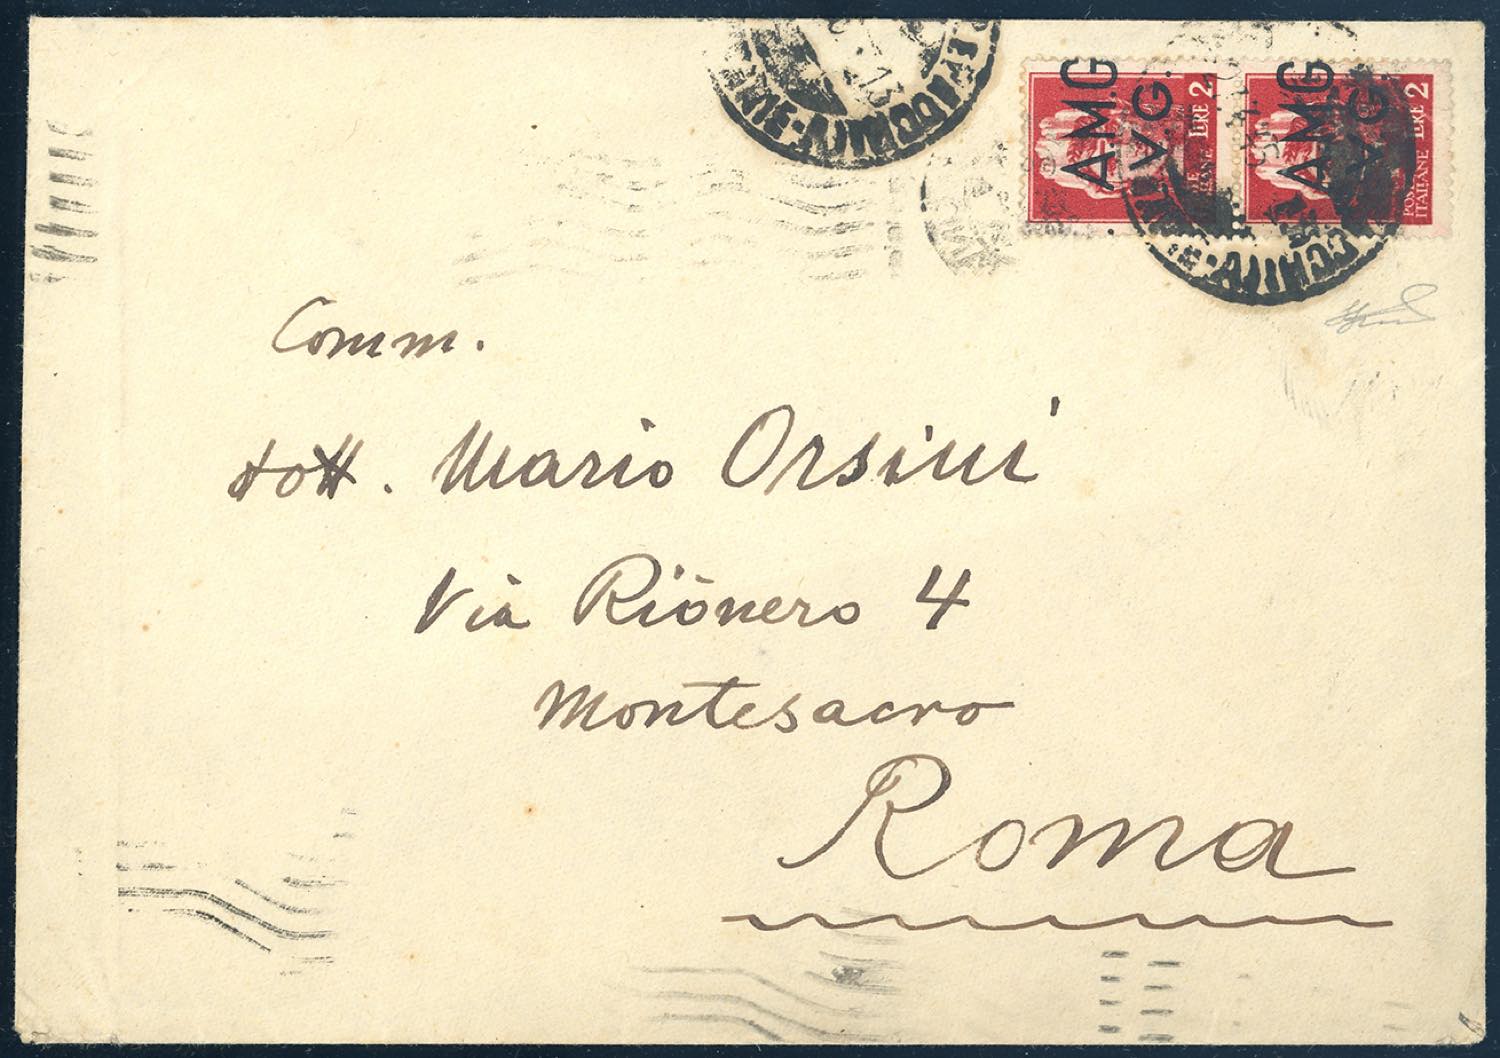 A.M.G. A.M.G.
V.G. V.G.
LIRE 2 LIRE 2
POSTE ITALIANE
Comm.
dott. Mario Orsini
Via Rionero 4
Montesacro
Roma